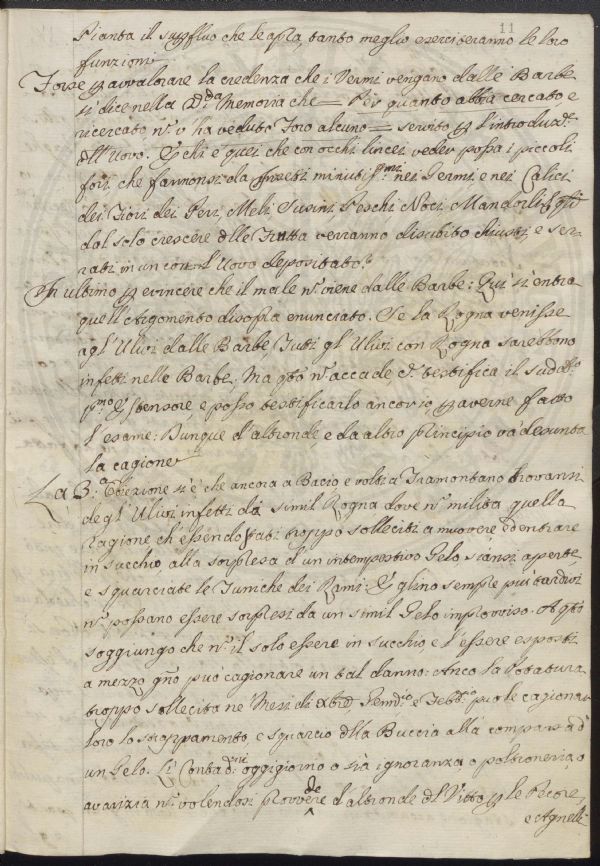 11
Pianta il suppfluo che le opta, tanto meglio eserciteranno le loro
funzioni
Forse p avvalorare la credenza che i Vermi vengano dalle Barbe
si dice nella Dta Memoria che = Per quanto abbia cercato e
ricercato nō v'ha veduto Foro alcuno = servito p l'introduze
dll'Uovo. E chi è quei che con occhi lincei veder possa i piccoli
fori, che fannonsi da Insetti minuti nei Germi, e nei Calici
dei Fiori dei Peri, Meli, Susini, Peschi, Noci, Mandorli
dal solo crescere dlle Frutta verranno di subito chiusi, e ser-
rati in un con l'Uovo depositato?
In ultimo p evincere che il male nō viene dalle Barbe: Qui si entra
quell'Argomento disopra enunciato. Se la Rogna venisse
agl'Ulivi dalle Barbe Tutti gl'Ulivi con Rogna sarebbono
infetti nelle Barbe. Ma qto nō accade testifica il sudto
Estensore, e posso testificarlo ancor io p averne fatto
l'esame: Dunque d'altronde, e da altro principio va' desunta
la cagione
La 3a Obiezione si è che ancora a Bacìo e volti a Tramontano trovansi
degl'Ulivi infetti da simil Rogna dove nō milita quella
Ragione ch'essendo stati troppo solleciti a muovere ed entrare
in succhio, alla sorpresa d'un intempestivo Gelo siansi aperte,
e squarciate le Tuniche dei Rami: E glino sempre piu tardivi
nō possano essere sorpresi da un simil Gelo improvviso. A qto
soggiungo che nō il solo essere in succhio e l'essere esposti
a mezzo gno può cagionare un tal danno: Anco la Potatura
troppo sollecita ne' Mesi di Genno e Febbo puole cagionar
loro lo strappamento, e squarcio dlla Buccia alla comparsa d'
un Gelo. Li Contadni oggigiorno o sia ignoranza, o poltroneria, o
avarizia nō volendosi provvedere d'altronde dl Vitto p le Pecore,
e Agnelli